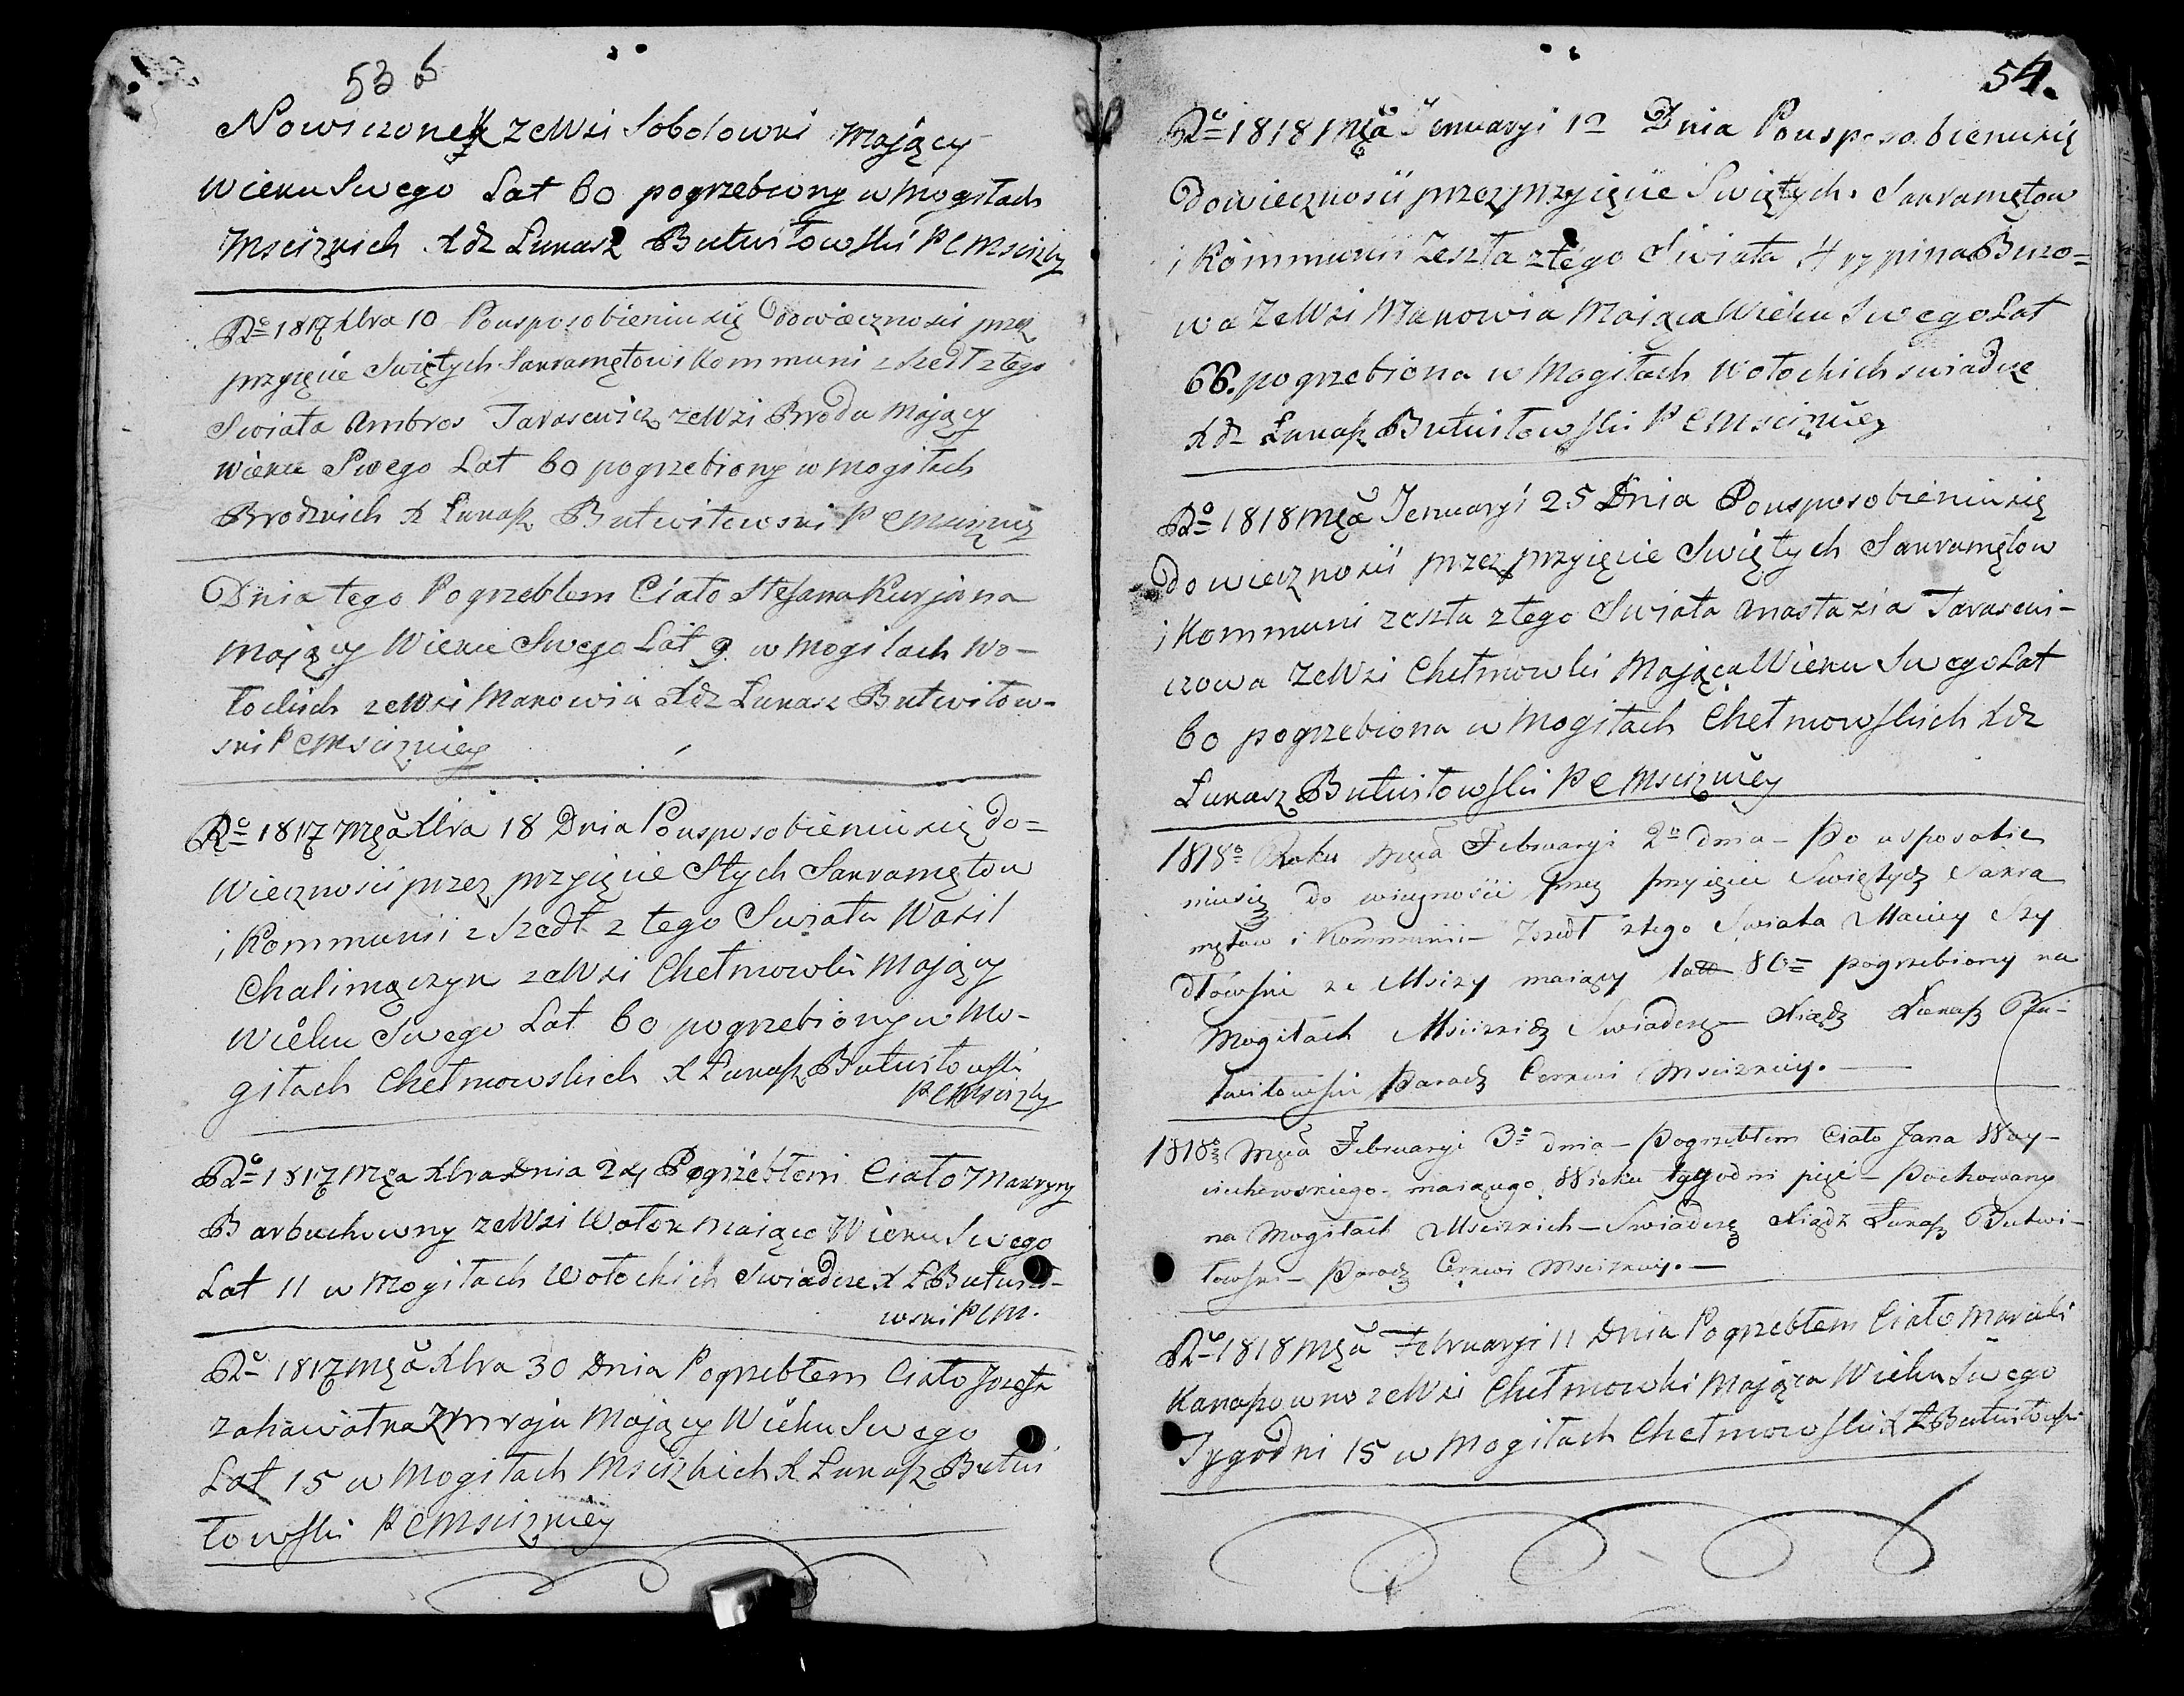 53 b
Nowiczonek zeWsi Sobolowki Mający
Wieku Swego Lat 60 pogrzebiony w Mogiłach
Msciżkich Xdz Łukasz Butwiłowski P C Msciżky
Ro 1817 Xbra 10 Pousposobieniu się do wieczności przez
przyięcie Swiętych Sakramętow i Kommuni zszedł z tego
Swiata Ambros Tarasewicz zeWsi Broda Mający
wieku Swego Lat 60 pogrzebiony w mogiłach
Brodzkich X Łukasz Butwiłowski P C Msciżkiey
Dnia tego Pogrzebłem Ciało Stefana Kurjana
Mający Wieku Swego Lat 9 w Mogiłach Wo-
łockich zeWsi Makowia Xdz Łukasz Butwiłow-
ski P C Msciżkiey
Ro 1817 Mca Xbra 18 Dnia Pousposobieniu się do=
Wieczności przez przyięcie Stych Sakramętow
i Kommunii zszedł z tego Swiata Wasil
Chalimączyk zeWsi Chełmowki Mający
Wieku Swego Lat 60 pogrzebiony w Mo-
giłach Chełmowskich X Łukasz Butwiłowski
P C Msciżky
Ro 1817 Mca Xbra Dnia 24 Pogrzebłem Ciało Makryny
Barbuchowny zeWsi Wołok maiąco Wieku Swego
Lat 11 w Mogiłach Wołockich Swiadcze X Ł Butwiło-
wski P C M.
Ro 1817 Mca Xbra 30 Dnia Pogrzebłem Ciało Jozefa
Zahawałka Mający Wieku Swego
Lat 15 w Mogiłach Msciżkich X Łukasz Butwi
łowski P C Msciżkiey
54.
Ro 1818 Mca Jenuaryi 12 Dnia Pousposobieniu się
do wieczności przez przyięcie Swiętych Sakramętow
i Kommunii Zeszła z tego Swiata Agrypina Buro=
wa ZeWsi Makowia Maiąca Wieku Swego Lat
66. pogrzebiona w Mogiłach Wołockich swiadczę
Xdz Łukasz Butwiłowski P C Msciżkiey
Ro 1818 Mca Jenuaryi 25 Dnia Pousposobieniu się
do wieczności przez przyięcie Swiętych Sakramętow
i Kommuni zeszła z tego Swiata Anastazia Tarasewi-
czowa ZeWsi Chełmowki Mająca Wieku Swego Lat
60 pogrzebiona w Mogiłach Chełmowskich Xdz
Łukasz Butwiłowski P C Msciżkiey
1818o Roku Mca Februaryi 2o dnia - Po usposobie
niu się do wieczności przez przyięcie Swiętych Sakra
mętow i Kommunii - Zszedł z tego Swiata Maciey Szy
dłowski ze Msciży maiący lat 80= pogrzebiony na
Mogiłach Msciżkich Swiadczę - Xiądz Łukasz Bu-
twiłowski Paroch Cerkwi Msciżkiey. -
1818o Mca Februaryi 3o dnia - Pogrzebłem Ciało Jana Woy-
ciechowskiego - maiącego Wieku tygodni pięć - Pochowany
na Mogiłach Msciżkich - Swiadczę Xiądz Łukasz Butwi-
łowski - Paroch Cerkwi Msciżkiey. -
Ro 1818 Mca Februaryi 11 Dnia Pogrzebłem Ciało Maruli
Kanaszowno zeWsi Chełmowki Mająca Wieku Swego
Tygodni 15 w Mogiłach Chełmowskich X Ł Butwiłowski